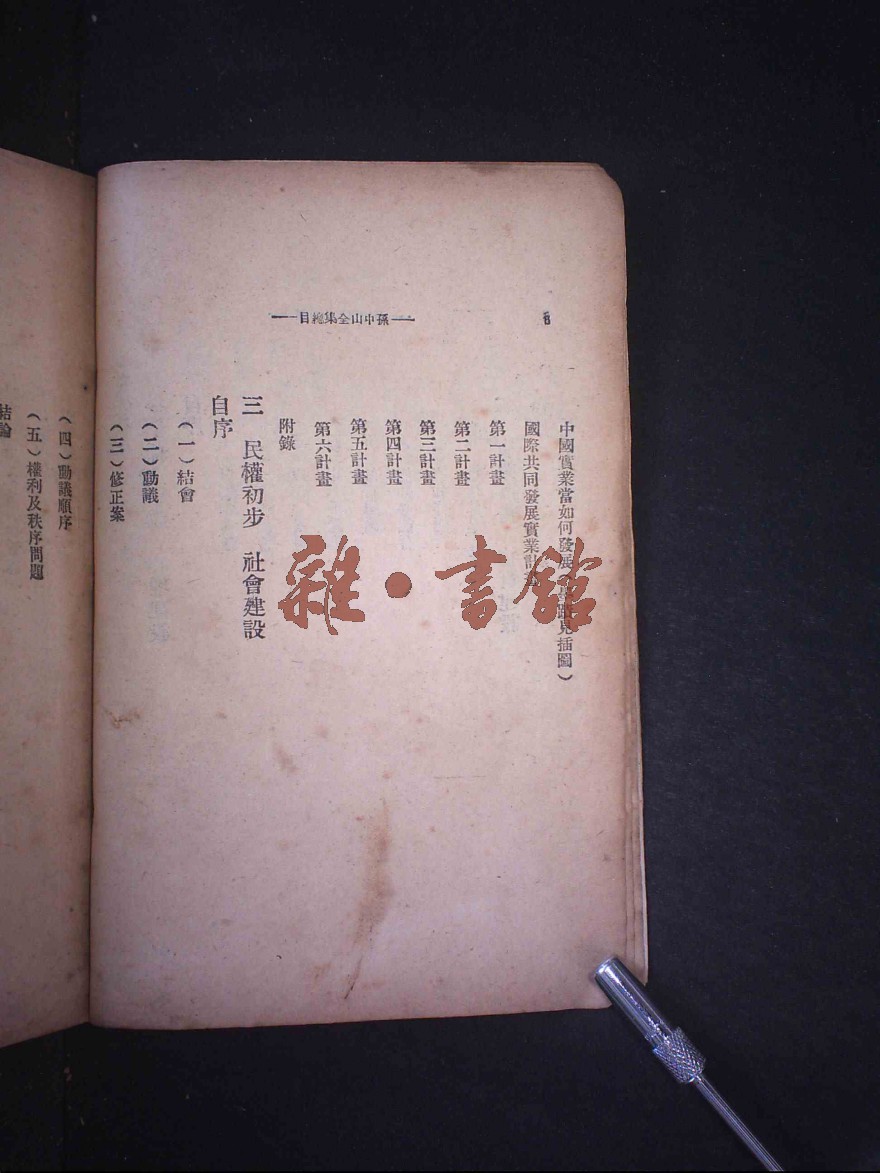 孫中山全集總目
6
中國實業當如何發展 見插圖）
國際共同發展實業計
第一計畫
第二計畫
第三計畫
第四計畫
第五計畫
第六計畫
附錄
三　民權初步　社會建設
自序
（一）結會
（二）動議
（三）修正案
（四）動議順序
（五）權利及秩序問題
結論
雜·書館